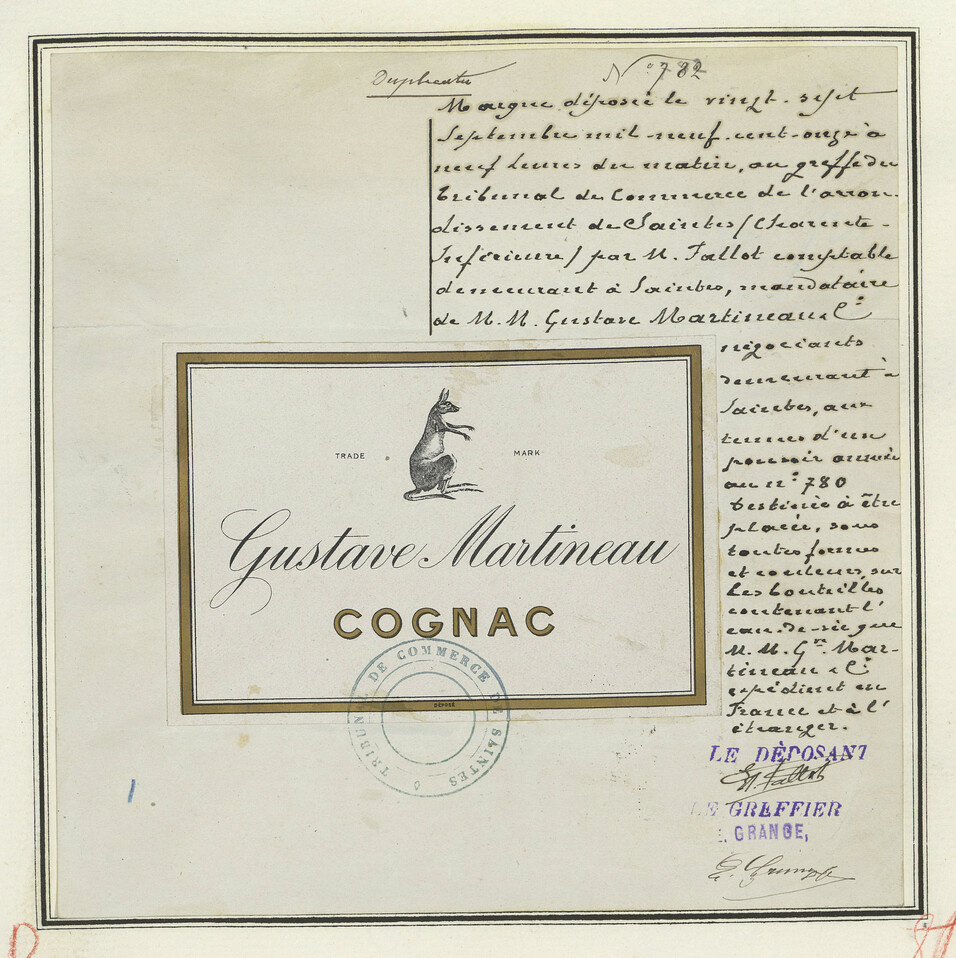 Duplicata
N° 782
Marque déposée le vingt-sept
Septembre mil neuf cent onze à
neuf heures du matin, au greffe du
tribunal de Commerce de l'arron-
dissement de Saintes (Charente-
Inférieure) par M. Fallot comptable
demeurant à Saintes, mandataire
de M.M. Gustave Martineau & Cie
négociants
demeurant à
Saintes, aux
termes d'un
pouvoir annexé
au n° 780
Destinée à être
placée, sous
toutes formes
et couleurs, sur
les bouteilles
contenant l'
eau-de-vie que
M.M. Gve Mar-
tineau & Cie
expédient en
France et à l'
étranger.
TRADE MARK
Gustave Martineau
COGNAC
DÉPOSÉ
TRIBUNAL DE COMMERCE DE SAINTES
LE DÉPOSANT
Fallot
LE GREFFIER
E. GRANGE,